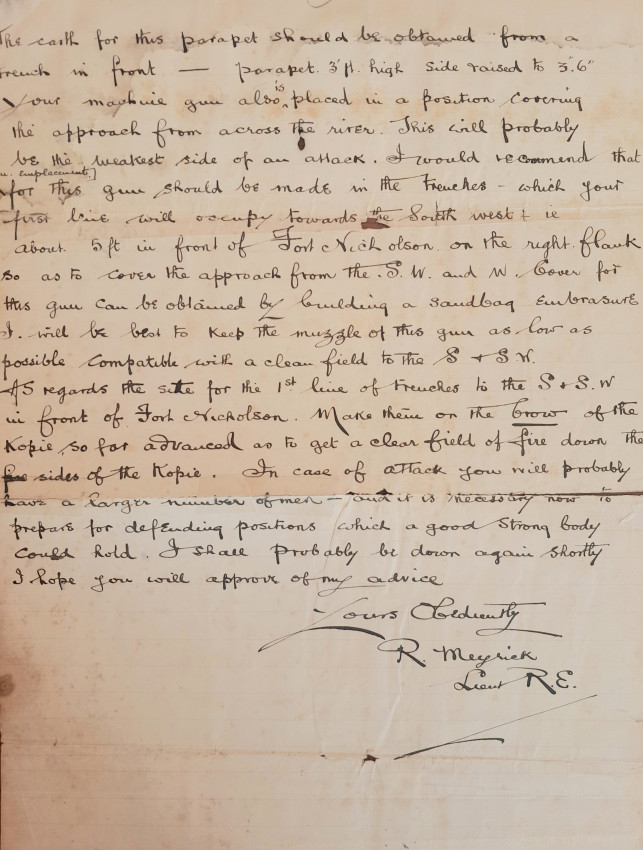 The earth for this parapet should be obtained from a
trench in front — parapet. 3 ft. high side raised to 3'.6"
Your machine gun also is placed in a position covering
the approach from across the river. This will probably
be the weakest side of an attack. I would recommend that
emplacement]
for this gun should be made in the trenches - which your
first line will occupy towards the South west + ie
about 5 ft in front of Fort Nicholson on the right flank
so as to cover the approach from the S.W. and W. Cover for
this gun can be obtained by building a sandbag Embrasure
I. will be best to keep the muzzle of this gun as low as
possible compatible with a clean field to the S + S.W.
As regards the site for the 1st line of trenches to the S + S.W
in front of Fort Nicholson. Make them on the brow of the
Kopie, so far advanced as to get a clear field of fire down the
sides of the Kopie. In case of attack you will probably
have a larger number of men — and it is necessary now to
prepare for defending positions which a good strong body
could hold. I shall probably be down again shortly
I hope you will approve of my advice
Yours Obediently
R. Meyrick
Lieut R.E.